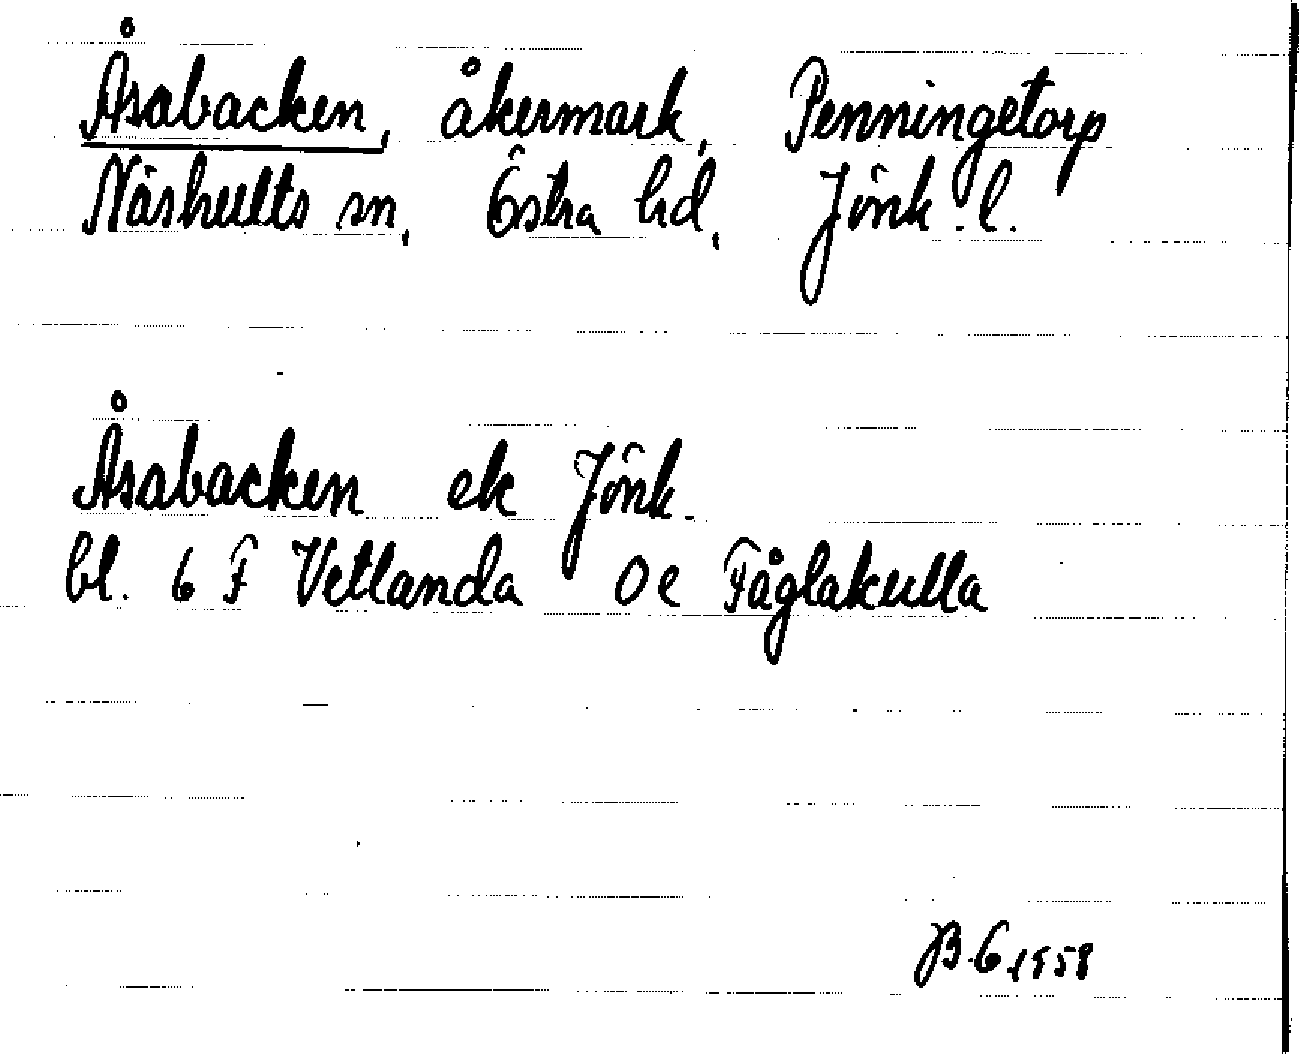 Åsabacken, åkermark, Penningetorp
Näshults sn, Östra hd, Jönk. l.
Åsabacken ek Jönk.
bl. 6 F Vetlanda 0 e Fåglakulla
B G 1958